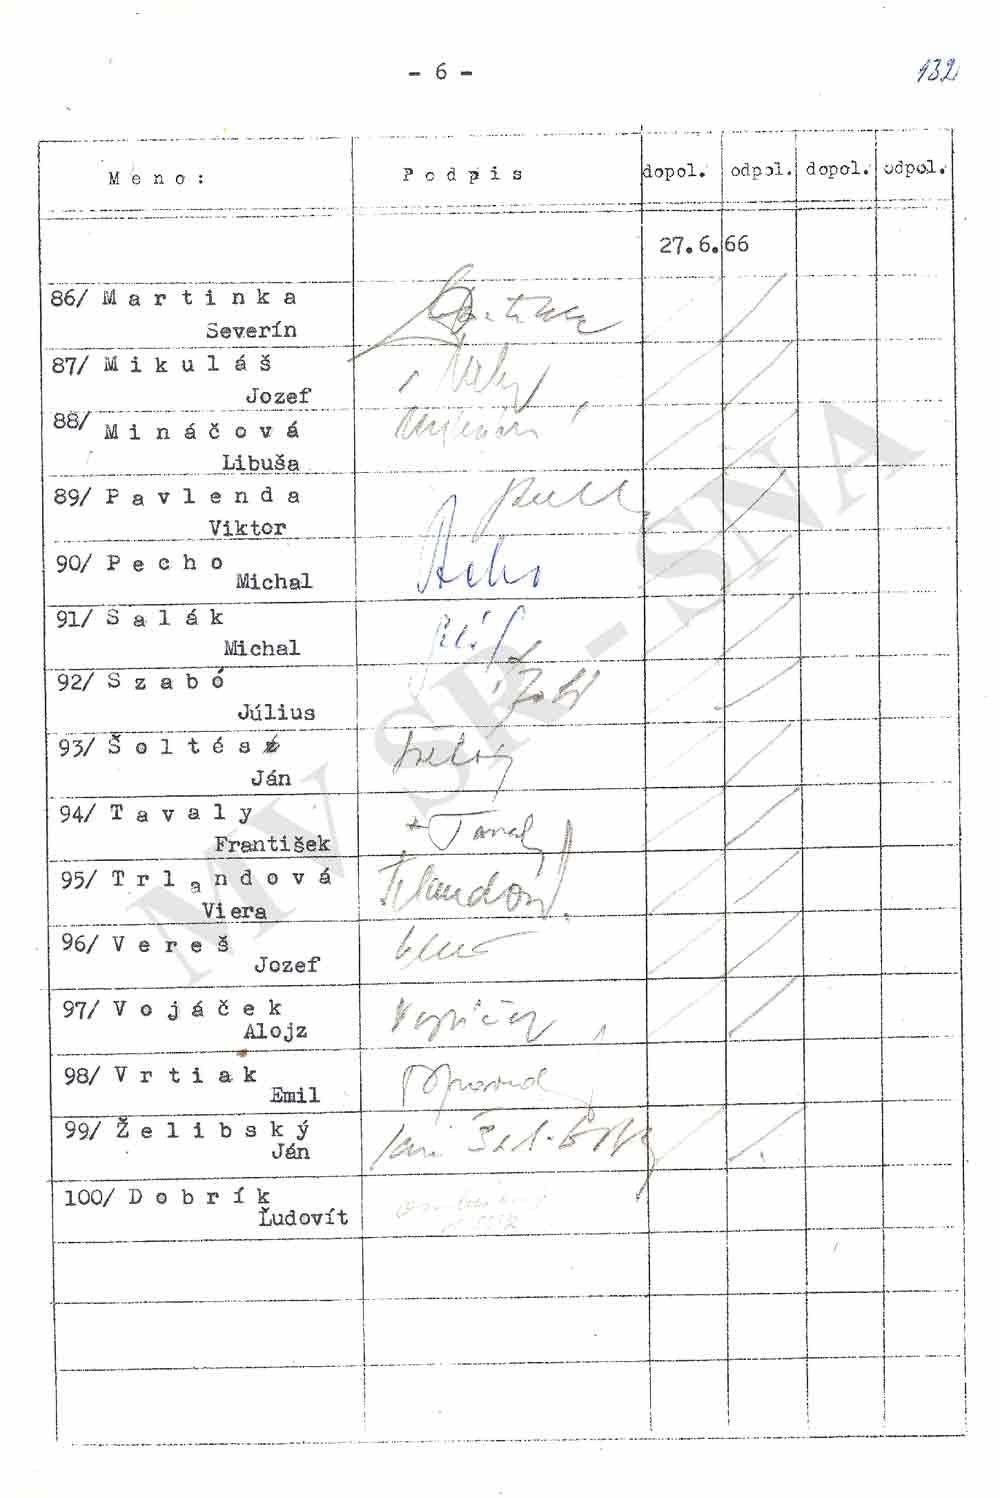 - 6 -
132
Meno: Podpis dopol. odpol. dopol. odpol.
27.6.66
86/ Martinka
Severín
87/ Mikuláš
Jozef
88/ Mináčová
Libuša
89/ Pavlenda
Viktor
90/ Pecho
Michal
Pecho
91/ Salák
Michal
92/ Szabó
Július
93/ Šoltés
Ján
94/ Tavaly
František
95/ Trlandová
Viera
96/ Vereš
Jozef
97/ Vojáček
Alojz
98/ Vrtiak
Emil
99/ Želibský
Ján
100/ Dobrík
Ľudovít
MV SR - SNA